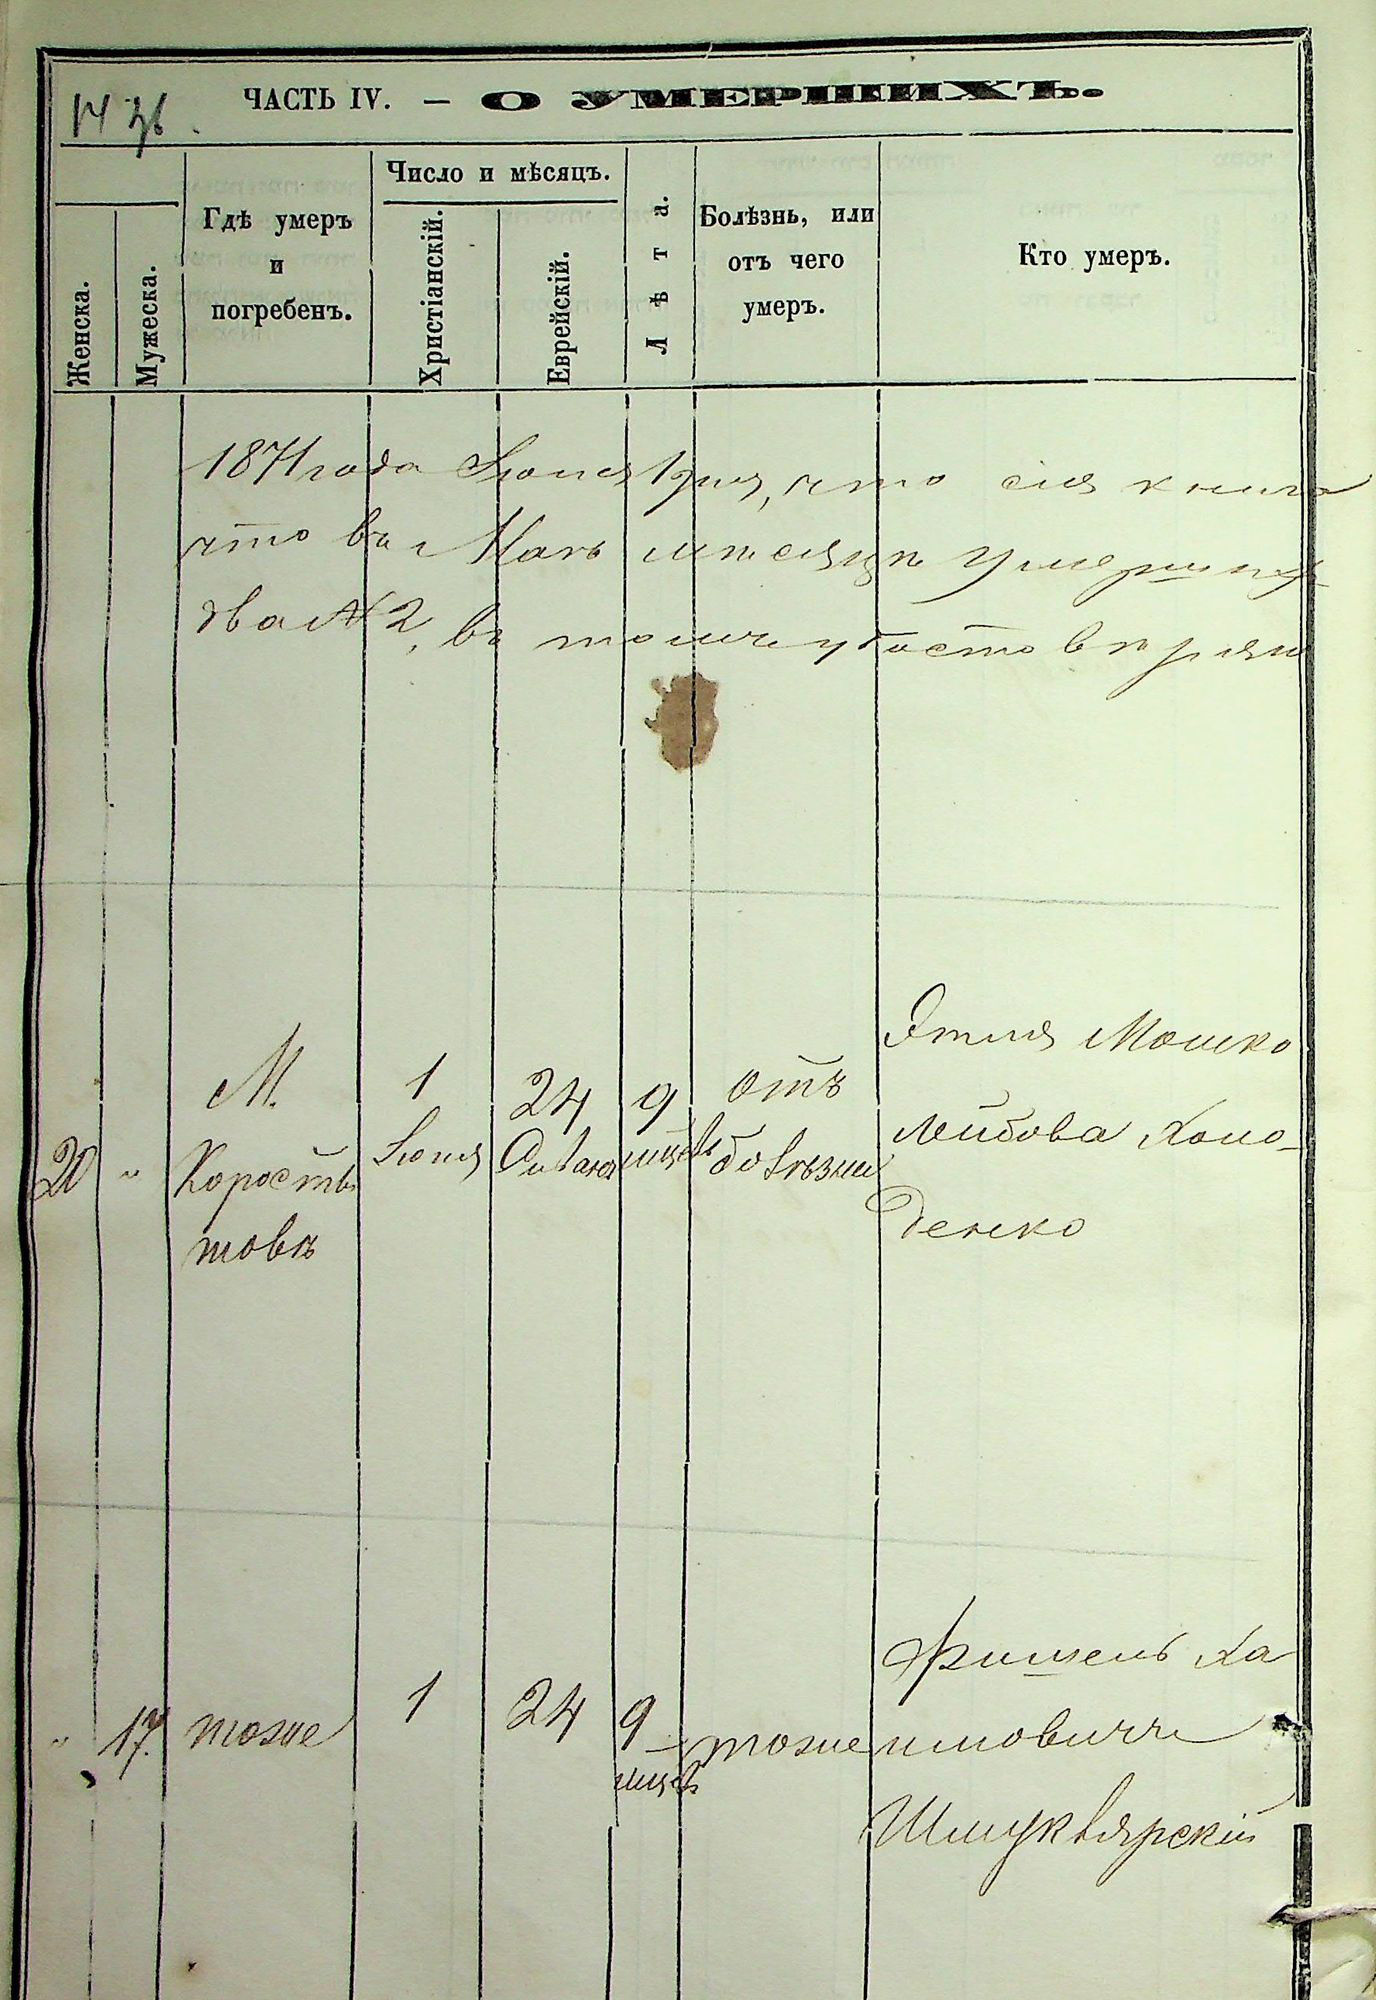 ЧАСТЬ IV. — О УМЕРШИХЪ.
Женска.
Мужеска.
Гдѣ умеръ
и
погребенъ.
Число и мѣсяцъ.
Христіанскій.
Еврейскій.
Лѣта.
Болѣзнь, или
отъ чего
умеръ.
Кто умеръ.
1871 года Іюня 1 дня, что сія книга
что въ Маѣ мѣсяцѣ умершихъ
два № 2, въ томъ удостовѣряю
20 " М. Коростышовѣ 1 Іюня 24 Сивана 9 отъ болѣзни
Этля Мошко
Лейбова Холо-
денко
" 17. тоже 1 24 9 тоже
Фишель Ха
имовичъ